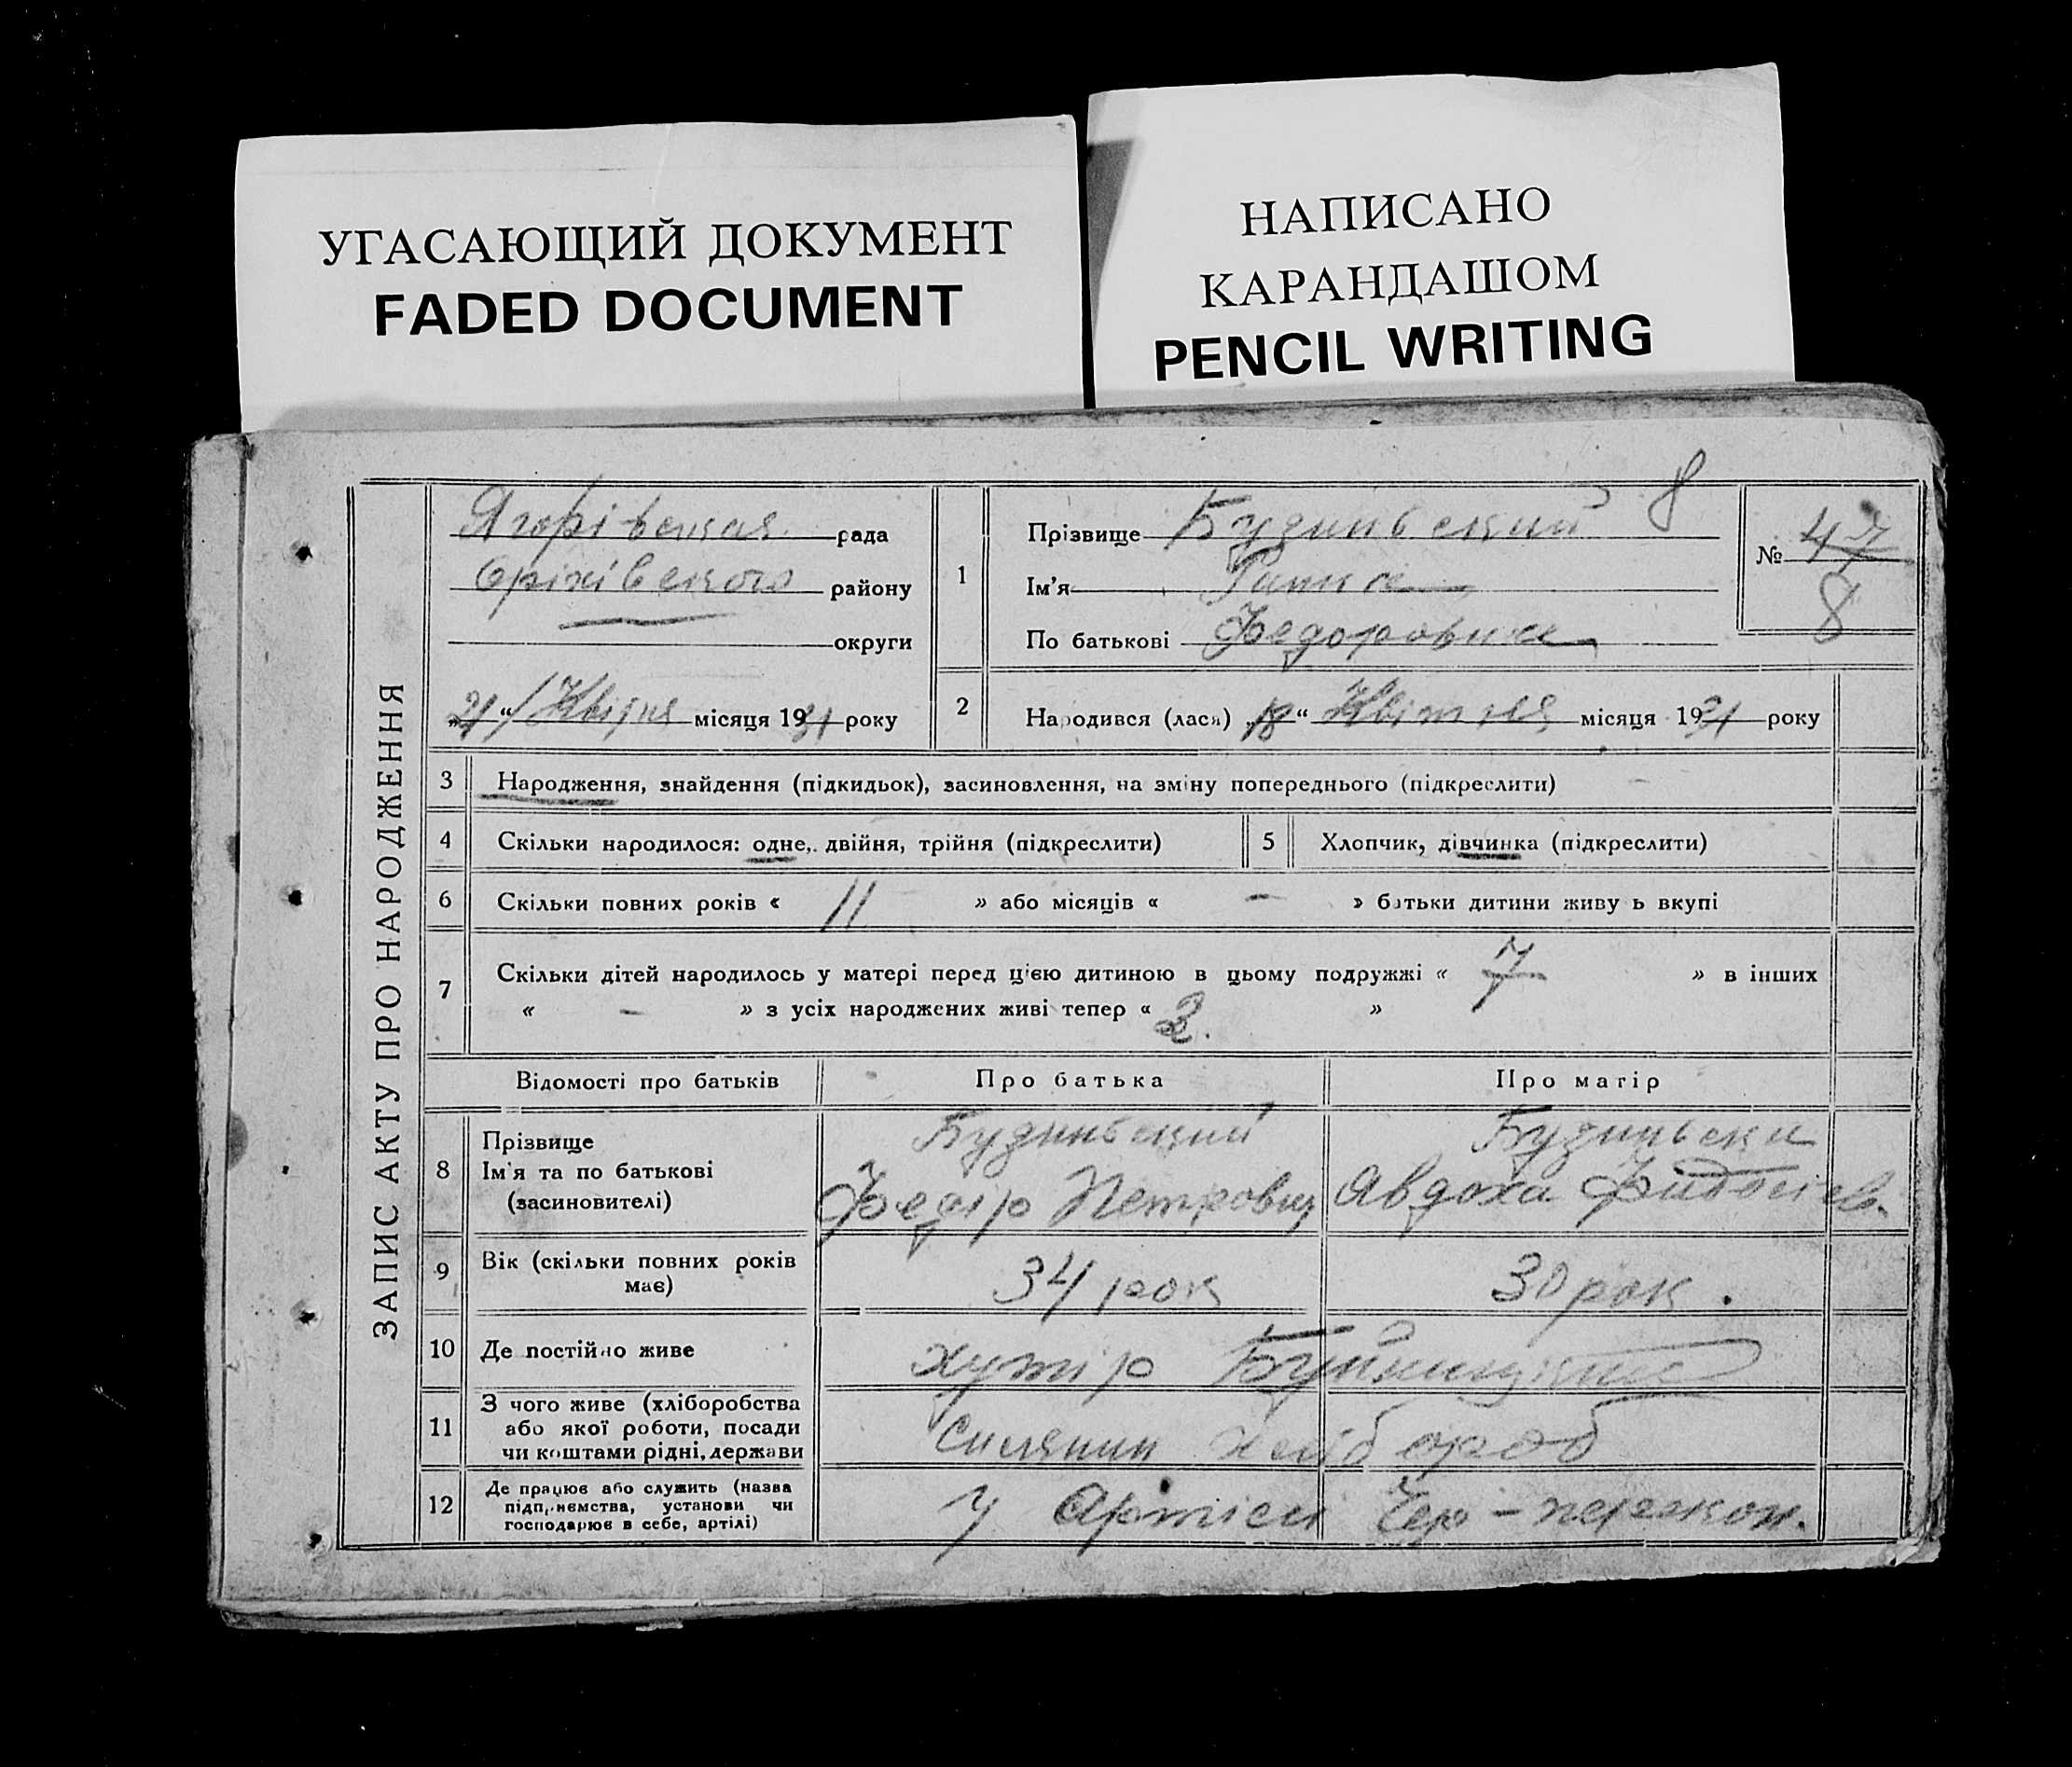 УГАСАЮЩИЙ ДОКУМЕНТ
FADED DOCUMENT
НАПИСАНО
КАРАНДАШОМ
PENCIL WRITING
ЗАПИС АКТУ ПРО НАРОДЖЕННЯ
рада
району
округи
„21“ Квітня місяця 1931 року
1
Прізвище 8
Ім’я
По батькові Федоровна
№ 47
8
2
Народився (лася) „18“ Квітня місяця 1931 року
3 Народження, знайдення (підкидьок), засиновлення, на зміну попереднього (підкреслити)
4 Скільки народилося: одне, двійня, трійня (підкреслити)
5 Хлопчик, дівчинка (підкреслити)
6 Скільки повних років « 11 » або місяців « – » батьки дитини живу ь вкупі
7 Скільки дітей народилось у матері перед цією дитиною в цьому подружжі « 7 » в інших
« – » з усіх народжених живі тепер « »
Відомості про батьків Про батька Про матір
8 Прізвище
Ім’я та по батькові
(засиновителі)
Федір Петрович
Явдоха
9 Вік (скільки повних років
має)
34 рок
30 рок.
10 Де постійно живе
хутір
11 З чого живе (хліборобства
або якої роботи, посади
чи коштами рідні, держави
Силянин хлібороб
12 Де працює або служить (назва
підприємства, установи чи
господарює в себе, артілі)
У Артіси